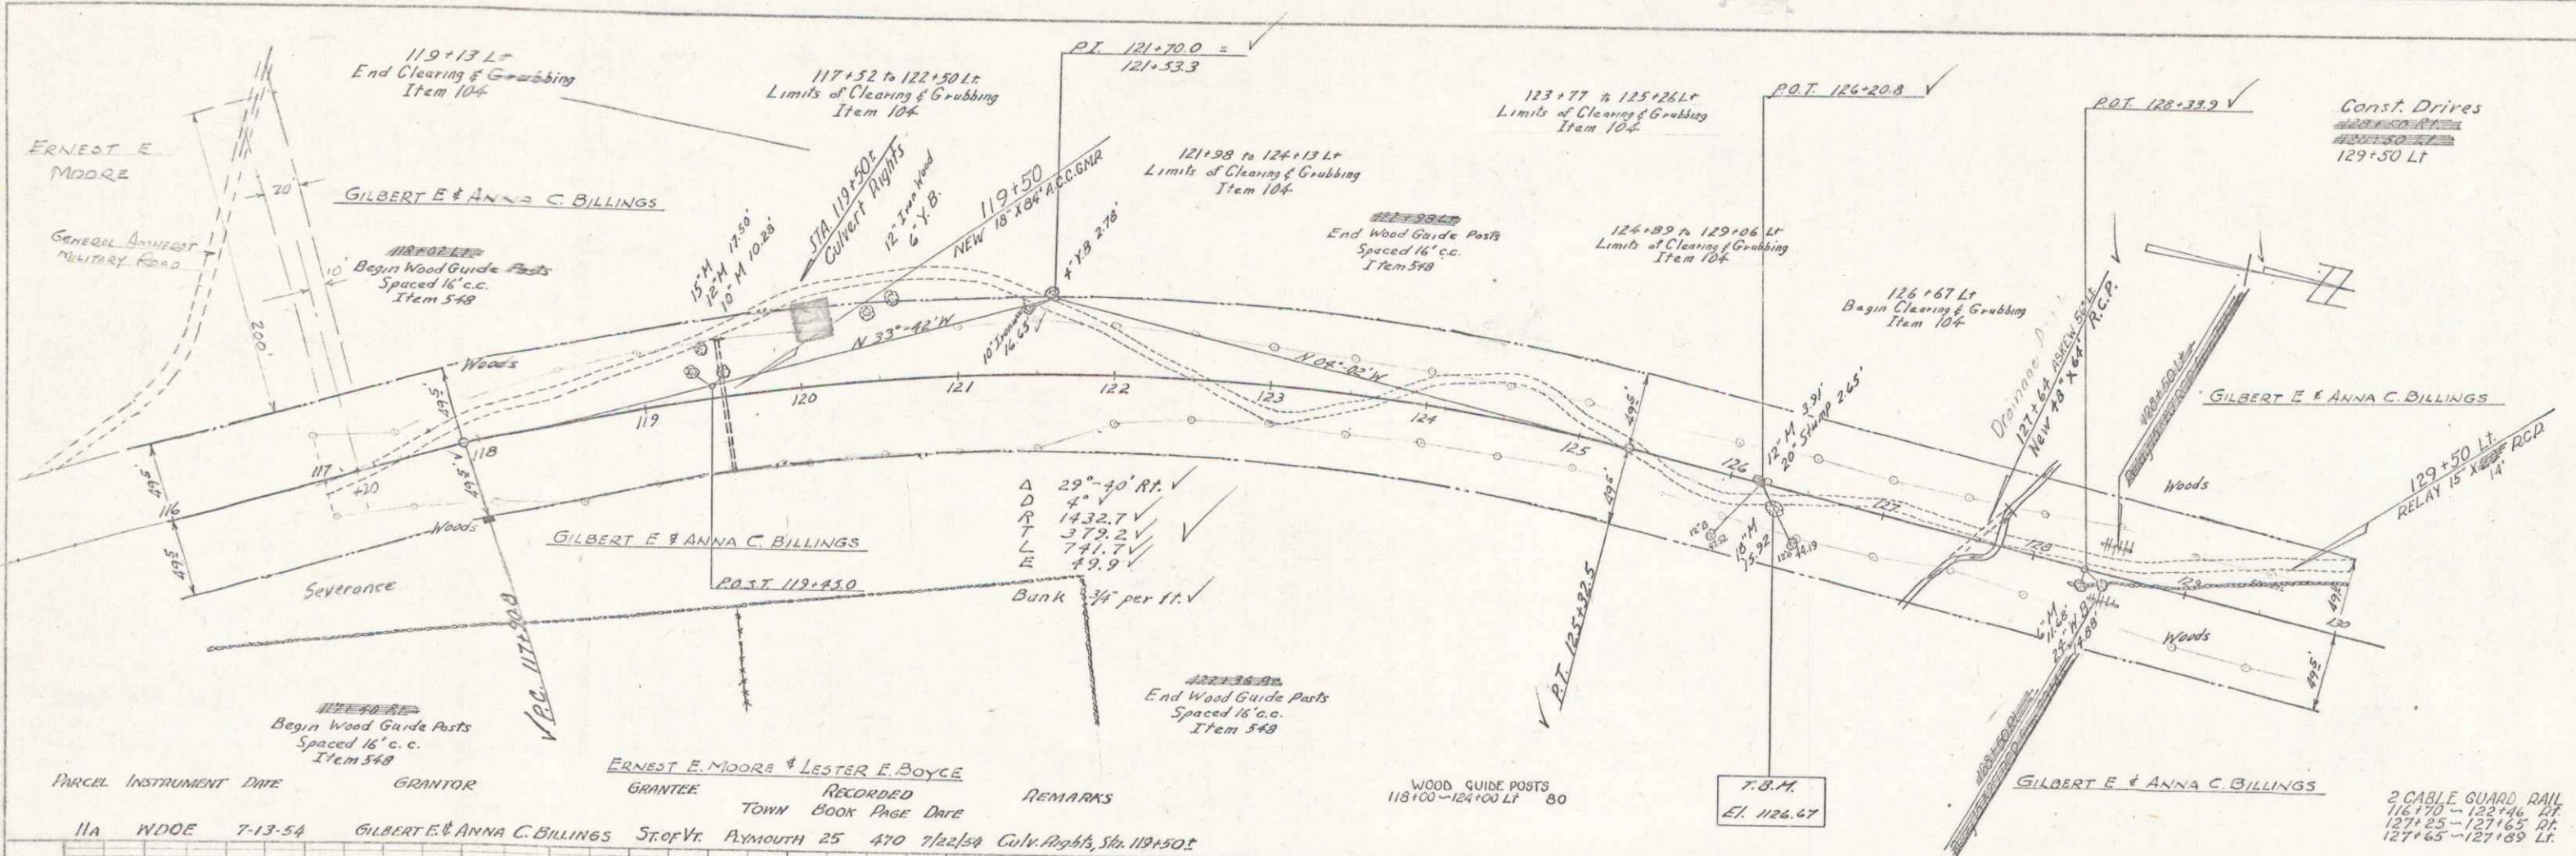 119+13 Lt
End Clearing & Grubbing
Item 104
117+52 to 122+50 Lt.
Limits of Clearing & Grubbing
Item 104
P.I. 121+70.0 =
121+53.3
123+77 to 125+26 Lt
Limits of Clearing & Grubbing
Item 104
P.O.T. 126+20.8
P.O.T. 128+33.9
Const. Drives
129+50 Lt
ERNEST E
MOORE
20'
GILBERT E & ANNA C. BILLINGS
GENERAL AMHERST
MILITARY ROAD
10'
200'
118+02 Lt
Begin Wood Guide Posts
Spaced 16' c.c.
Item 548
15" M 17.50'
12" M
10" M 10.28'
STA. 119+50±
Culvert Rights
12" Iron Wood
6" Y.B.
119+50
NEW 18" X 84' A.C.C.G.M.P.
4" Y.B 2.78'
121+98 to 124+13 Lt
Limits of Clearing & Grubbing
Item 104
122+98 Lt
End Wood Guide Posts
Spaced 16' c.c.
Item 548
124+89 to 129+06 Lt
Limits of Clearing & Grubbing
Item 104
126+67 Lt
Begin Clearing & Grubbing
Item 104
127+64 ASKEW 56° Lt
New 48" X 64' R.C.P.
128+50 Lt
GILBERT E & ANNA C. BILLINGS
129+50 Lt.
RELAY 15" X 14' RCP
Woods
49.5'
N 33°-42' W
10" Ironwood
16.65
N 04°-02' W
116
117
+20
118
119
120
121
122
123
124
125
126
127
128
129
130
49.5'
49.5'
49.5'
49.5'
49.5'
49.5'
49.5'
Woods
Woods
Woods
Severance
12" M 3.91'
20" Stump 2.65'
18" M
15.92
6" M
11.68'
14.88'
GILBERT E & ANNA C. BILLINGS
P.O.S.T. 119+45.0
Δ 29°-40' Rt.
D 4°
R 1432.7
T 379.2
L 741.7
E 49.9
Bank 3/4" per ft.
P.C. 117+90.8
P.T. 125+32.5
117+40 Rt
Begin Wood Guide Posts
Spaced 16' c.c.
Item 548
122+36 Rt
End Wood Guide Posts
Spaced 16' c.c.
Item 548
128+50 Rt
ERNEST E. MOORE & LESTER E. BOYCE
WOOD GUIDE POSTS
118+00~124+00 Lt 80
T.B.M.
El. 1126.67
GILBERT E & ANNA C. BILLINGS
2 CABLE GUARD RAIL
116+70 ~ 122+46 Rt.
127+25 ~ 127+65 Rt.
127+65 ~ 127+89 Lt.
PARCEL INSTRUMENT DATE GRANTOR GRANTEE RECORDED REMARKS
TOWN BOOK PAGE DATE
11A WDOE 7-13-54 GILBERT E. & ANNA C. BILLINGS ST. OF VT. PLYMOUTH 25 470 7/22/54 Culv. Rights, Sta. 119+50±